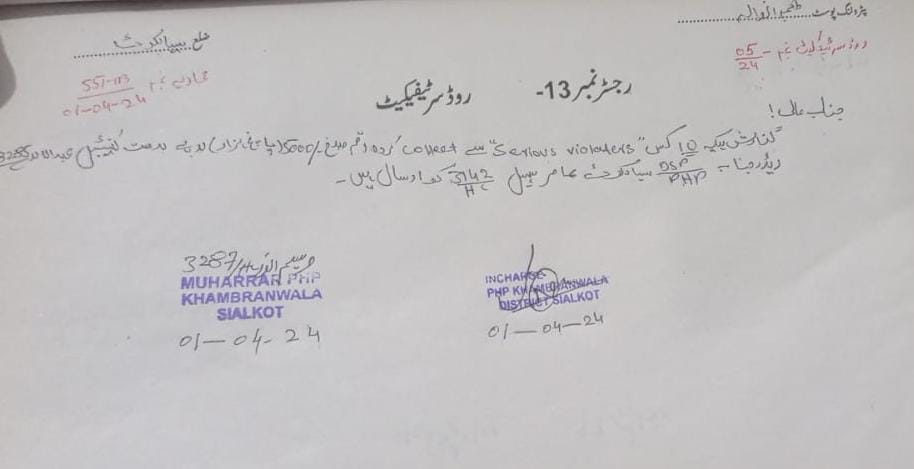 پٹرولنگ پوسٹ کھمبرانوالہ
ضلع سیالکوٹ
روڈ سرٹیفکیٹ نمبر - 05/24
محاذیہ نمبر 551-113
01-04-24
رجسٹر نمبر 13- روڈ سرٹیفیکیٹ
جناب عالی!
گزارش ہیکہ 10 کس "Serious violaters" سے Collect کردہ رقم مبلغ -/5000 (پانچ ہزار) روپے بدست کنسٹیبل عبداللہ 3285
ریڈر جناب DSP/PHP سیالکوٹ عامر سہیل 3142/HC کو ارسال ہیں۔
3287/
MUHARRAR PHP
KHAMBRANWALA
SIALKOT
01-04-24
INCHARGE
PHP KHAMBRANWALA
DISTRICT SIALKOT
01-04-24